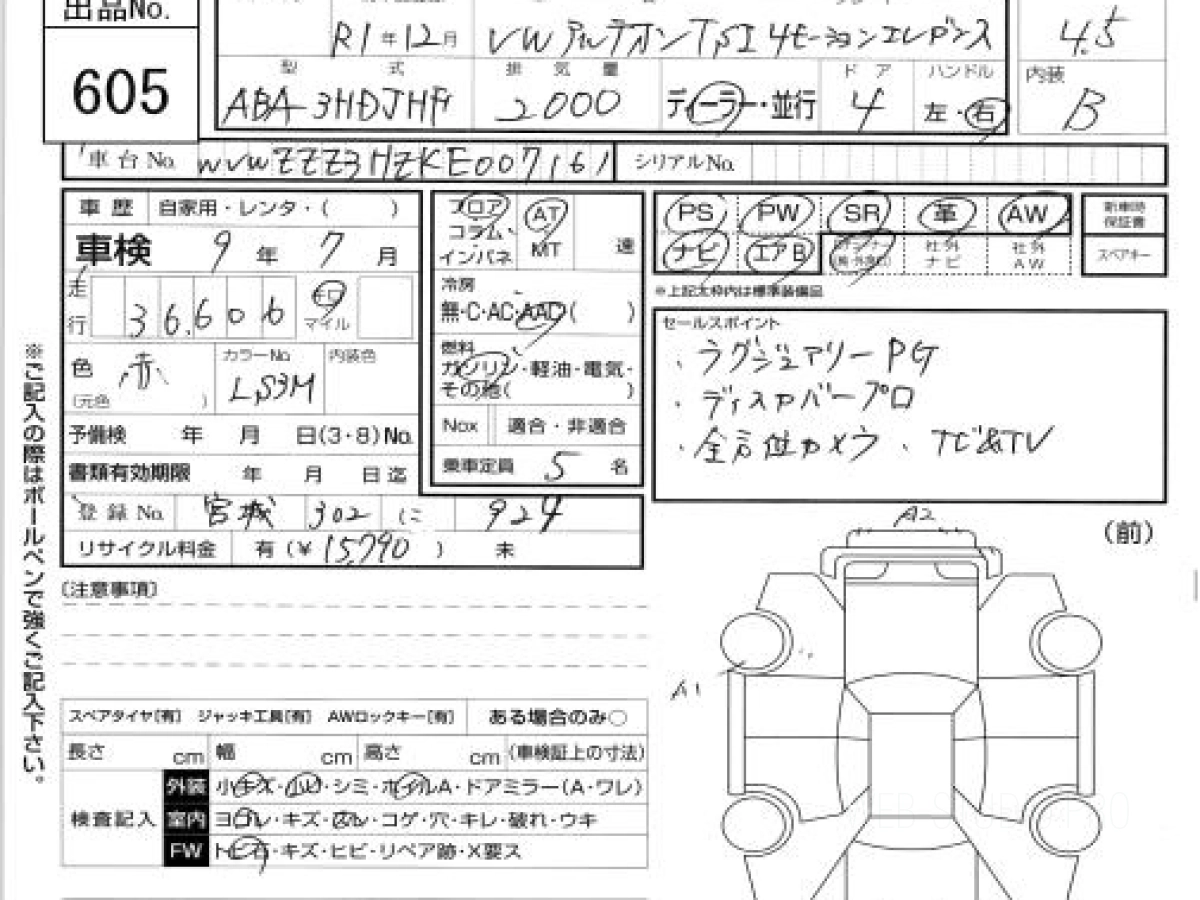 出品No.
605
R1年12月 VWアルテオンTSI 4モーションエレガンス 4.5
型式 排気量 ドア ハンドル 内装
ABA-3HDJHF 2000 ディーラー・並行 4 左・右 B
車台No. WVWZZZ3HZKE007161 シリアルNo.
車歴 自家用・レンタ・( )
車検 9年7月
走行 36,606 キロ マイル
色 赤 (元色 ) カラーNo. LS3M 内装色
予備検 年 月 日(3・8)No.
書類有効期限 年 月 日迄
登録No. 宮城 302 に 924
リサイクル料金 有(¥15,790) 未
フロア コラム インパネ AT MT 速
冷房
無・C・AC・AAC( )
燃料
ガソリン・軽油・電気・
その他( )
Nox 適合・非適合
乗車定員 5 名
PS PW SR 革 AW 新車時保証書
ナビ エアB 社外ナビ 社外AW スペアキー
※上記太枠内は標準装備品
セールスポイント
・ラグジュアリーPG
・ディスカバープロ
・全方位カメラ・TC&TV
(前)
A2
A1
(注意事項)
スペアタイヤ[有] ジャッキ工具[有] AWロックキー[有] ある場合のみ○
長さ cm 幅 cm 高さ cm (車検証上の寸法)
検査記入
外装 小キズ・小凹・シミ・ホイルA・ドアミラー(A・ワレ)
室内 ヨゴレ・キズ・スレ・コゲ・穴・キレ・破れ・ウキ
FW トビ石・キズ・ヒビ・リペア跡・X要ス
※ご記入の際はボールペンで強くご記入下さい。